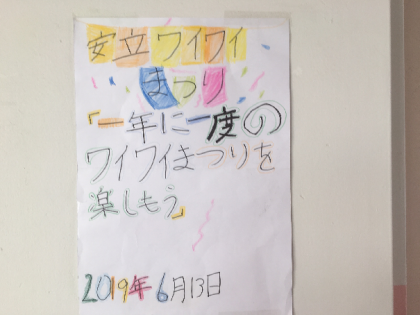 安立ワイワイ
まつり
「一年に一度の
ワイワイまつりを
楽しもう」
2019年6月13日